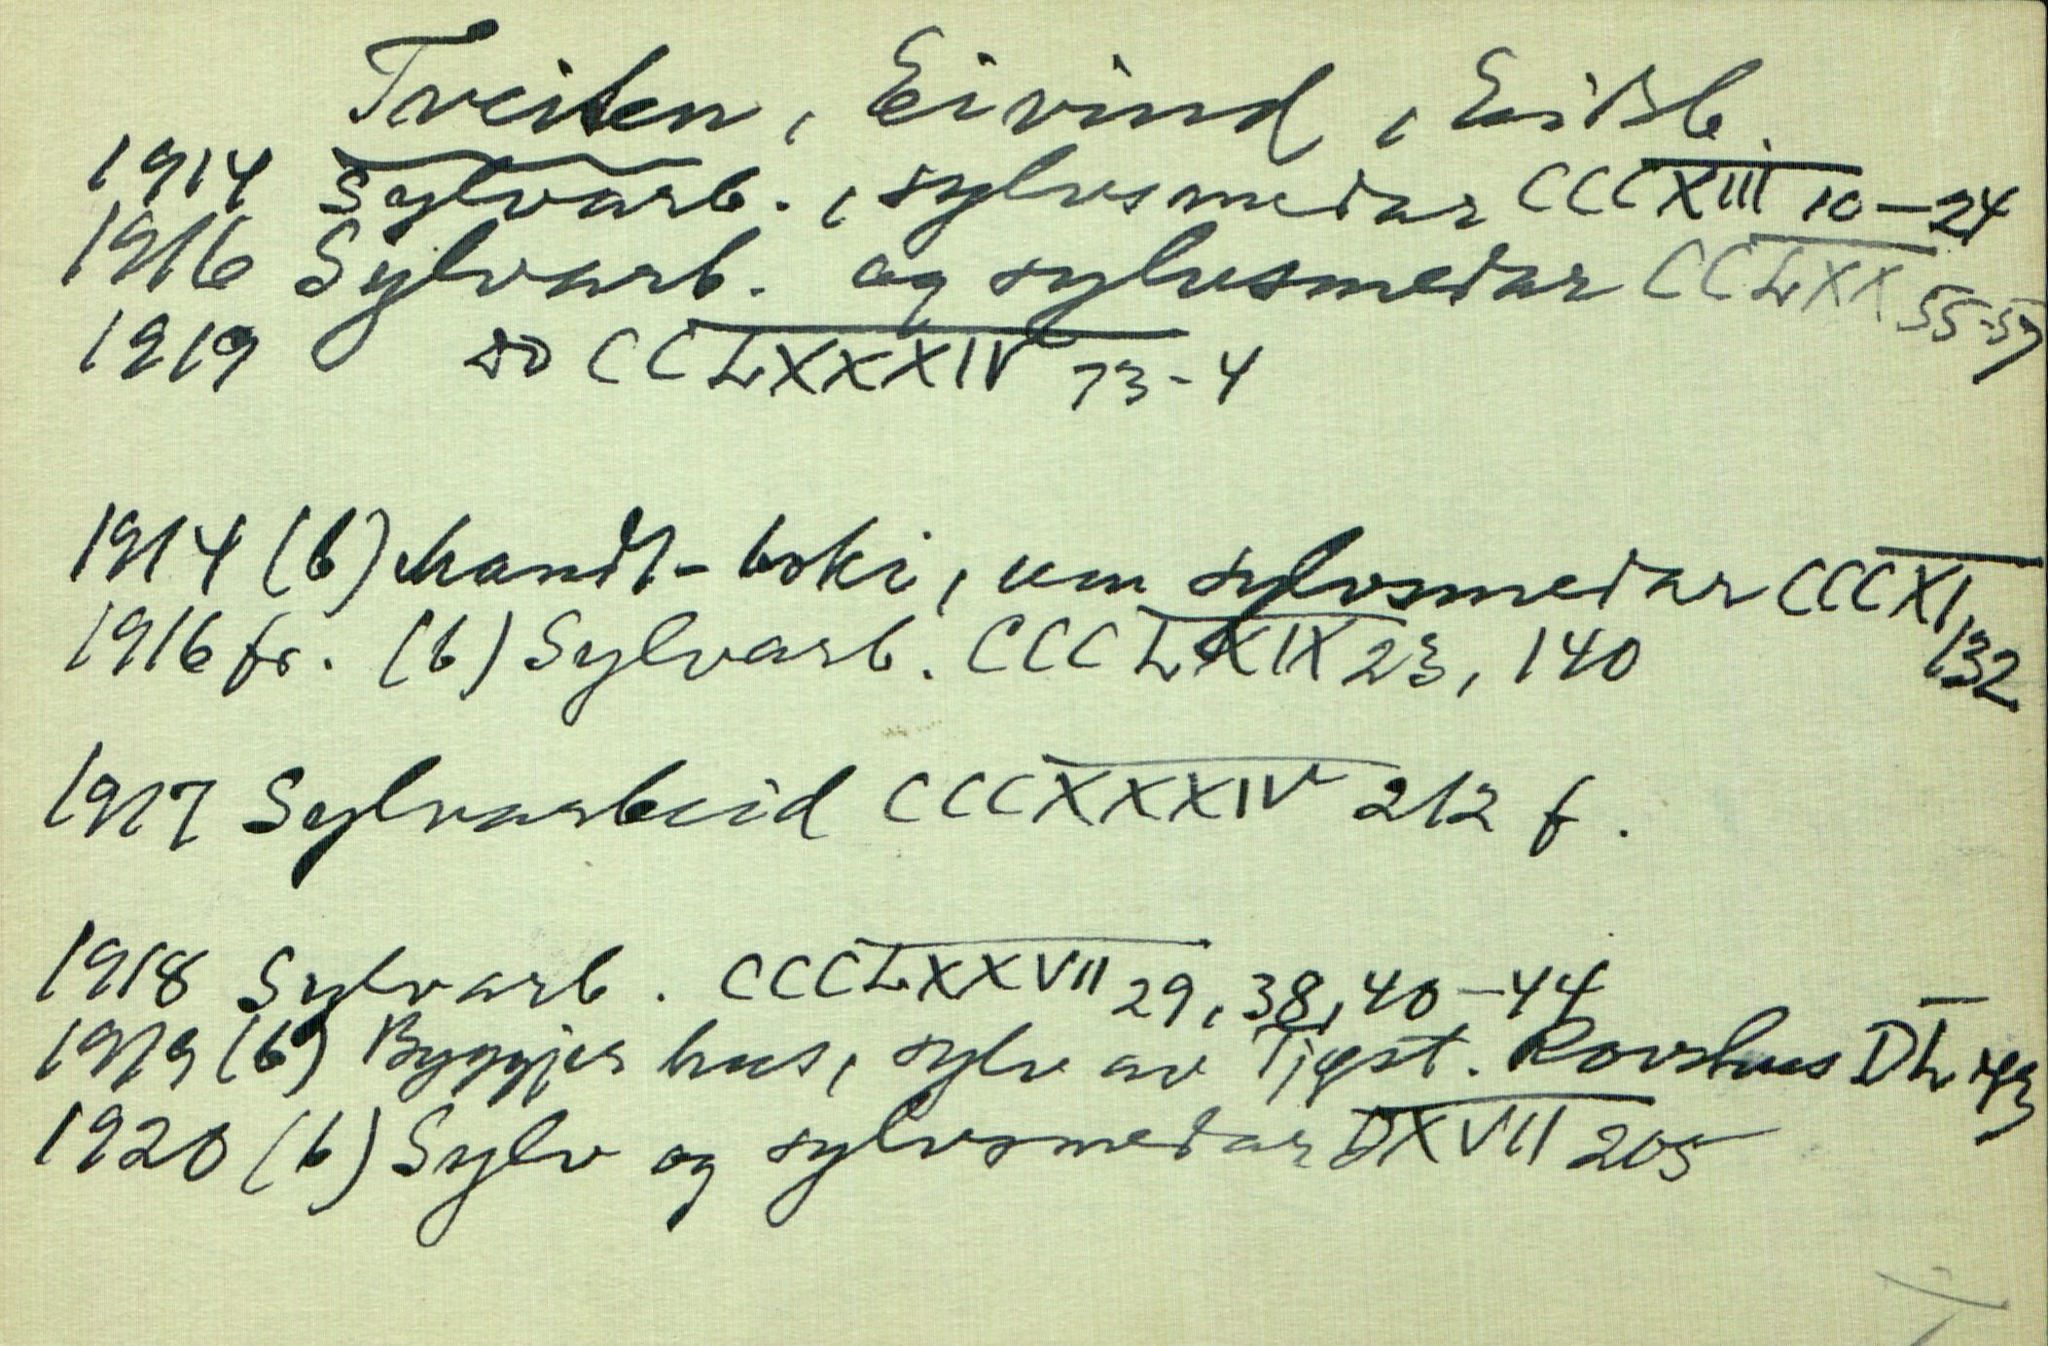 Tveiten, Eivind, Eidsb.
1914 Sylvarb., sylvsmedar CCCXIII 10-24
1916 Sylvarb. og sylvsmedar CCLXX 55-59
1919 do CCLXXXIV 73-4
1914 (b) handl-boki, um sylvsmedar CCCXI 132
1916 fr. (b) Sylvarb. CCCLXIX 23, 140
1917 Sylvarbeid CCCXXXIV 212 f.
1918 Sylvarb. CCCLXXVII 29, 38, 40-44
1919 (b) Byggjer hus, sylv av Tjøst. Rovhus DL
1920 (b) Sylv og sylvsmedar DXVII 205